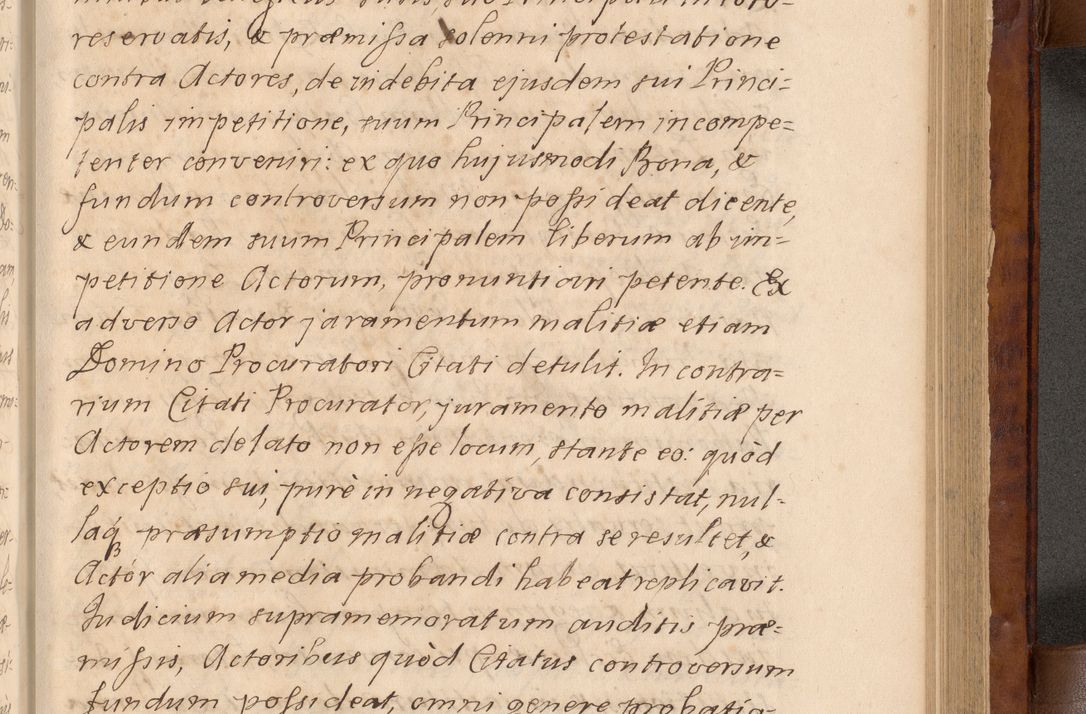 reservatis, & præmissa solenni protestatione
contra Actores, de indebita ejusdem sui Princi=
palis impetitione, suum Principalem incompe=
tenter conveniri: ex quo hujusmodi Bona, &
fundum controversum non possideat dicente,
& eundem suum Principalem liberum ab im=
petitione Actorum, pronuntiari petente. Ex
adverso Actor juramentum malitiæ etiam
Domino Procuratori Citati detulit. In contra=
rium Citati Procurator, juramento malitiæ per
Actorem delato non esse locum, stante eo: quòd
exceptio sui, purè in negativa consistat, nul-
laq præsumptio malitiæ contra se resultet, &
Actor alia media probandi habeat replicavit.
Judicium supramemoratum auditis præ=
missis, Actoribus quòd Citatus controversum
fundum possideat, omni genere probatio=